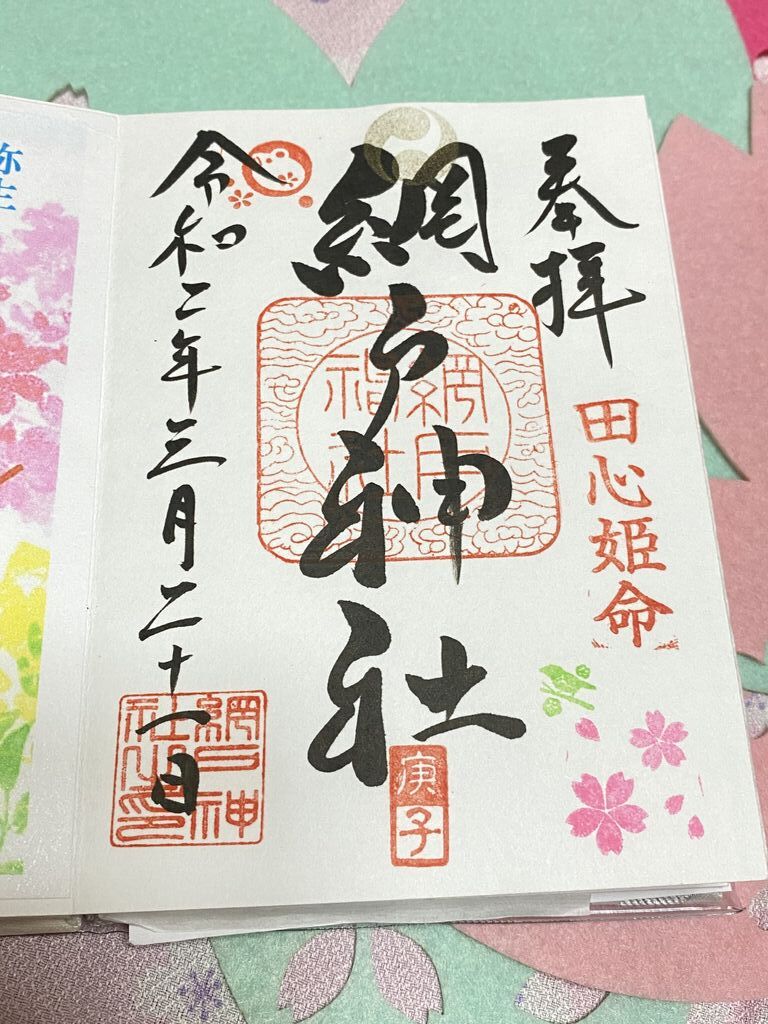 奉拝
田心姫命
網戸神社
網戸神社
庚子
令和二年三月二十一日
網戸神
社之印
弥生